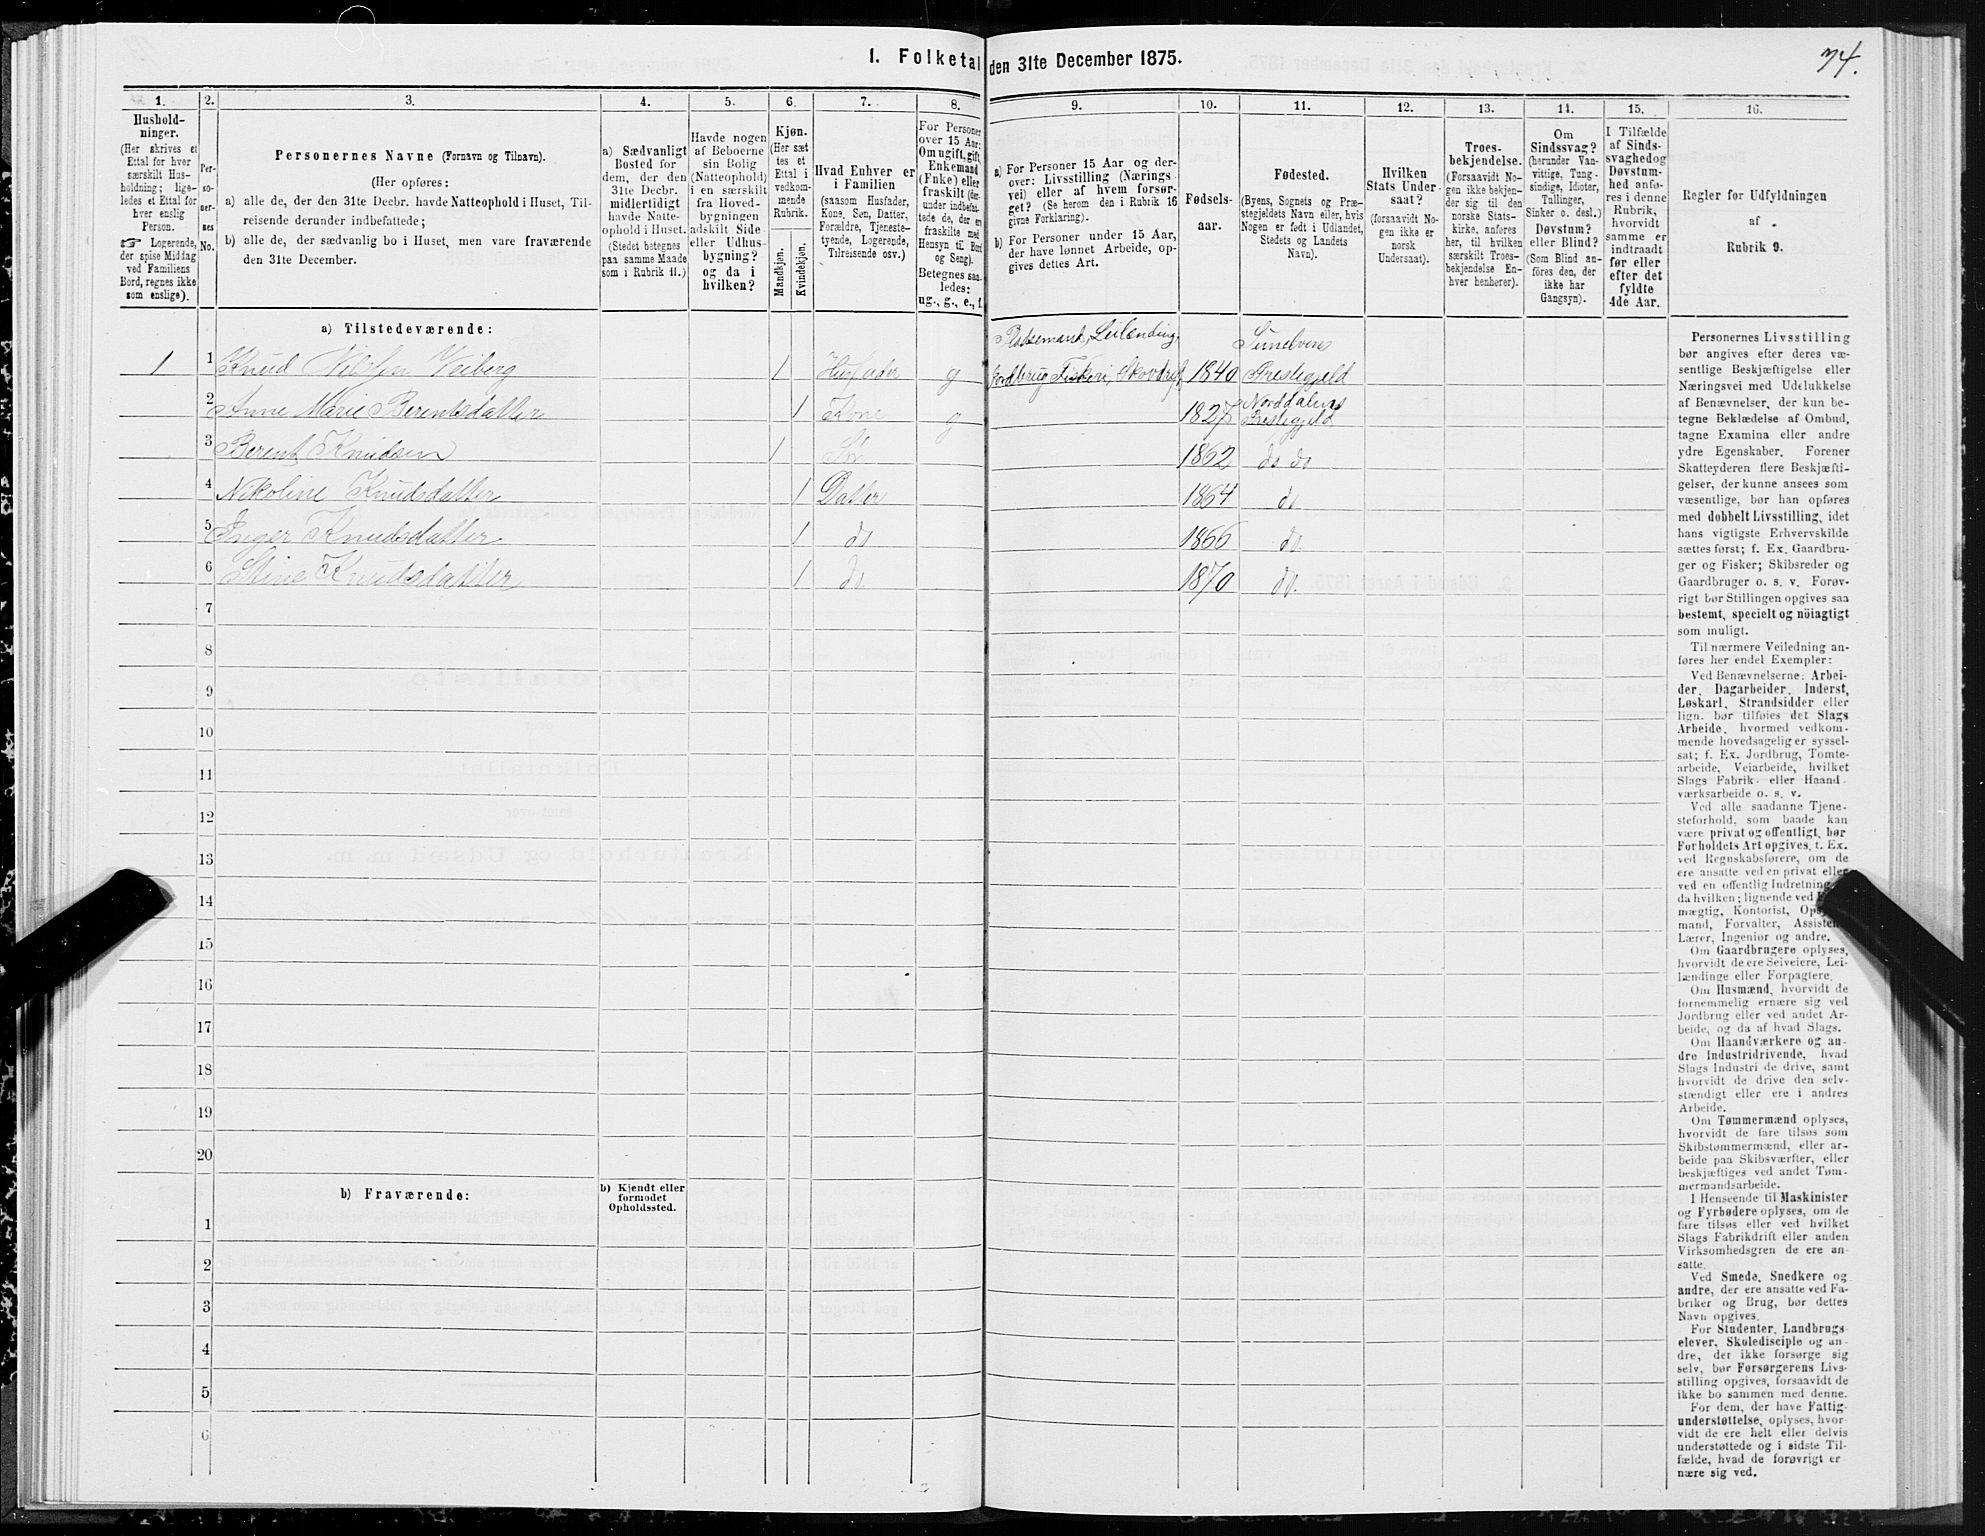 1. Folketal den 31te December 1875.
74.
1. 2. 3. 4. 5. 6. 7. 8. 9. 10. 11. 12. 13. 14. 15. 16.
Hushold-
ninger.
(Her skrives et
Ettal for hver
særskilt Hus-
holdning; lige-
ledes et Ettal for
hver enslig
Person.
☞ Logerende,
der spise Middag
ved Familiens
Bord, regnes ikke
som enslige).
Per-
so-
ner-
nes
No.
Personernes Navne (Fornavn og Tilnavn).
(Her opføres:
a) alle de, der den 31te Decbr. havde Natteophold i Huset, Til-
reisende derunder indbefattede;
b) alle de, der sædvanlig bo i Huset, men vare fraværende
den 31te December.
a) Sædvanligt
Bosted for
dem, der den
31te Decbr.
midlertidigt
havde Natte-
ophold i Huset.
(Stedet betegnes
paa samme Maade
som i Rubrik 11.)
Havde nogen
af Beboerne
sin Bolig
(Natteophold)
i en særskilt
fra Hoved-
bygningen
adskilt Side-
eller Udhus-
bygning?
og da i
hvilken?
Kjøn.
(Her sæt-
tes et
Ettal i
vedkom-
mende
Rubrik.
Mandkjøn.
Kvindekjøn.
Hvad Enhver er
i Familien
(saasom Husfader,
Kone, Søn, Datter,
Forældre, Tjeneste-
tyende, Logerende,
Tilreisende osv.)
For Personer
over 15 Aar:
Om ugift, gift,
Enkemand
(Enke) eller
fraskilt (der-
under indbefat-
tede de, der ere
fraskilte med
Hensyn til Bord
og Seng).
Betegnes saa-
ledes:
ug., g., e., f.
a) For Personer 15 Aar og der-
over: Livsstilling (Nærings-
vei) eller af hvem forsør-
get? (Se herom den i Rubrik 16
givne Forklaring).
b) For Personer under 15 Aar,
der have lønnet Arbeide, op-
gives dettes Art.
Fødsels-
aar.
Fødested.
(Byens, Sognets og Præ-
stegjeldets Navn eller, hvis
Nogen er født i Udlandet,
Stedets og Landets
Navn).
Hvilken
Stats Under-
saat?
(forsaavidt No-
gen ikke er
norsk
Undersaat).
Troes-
bekjendelse.
(Forsaavidt No-
gen ikke bekjen-
der sig til den
norske Stats-
kirke, anføres
her, til hvilken
særskilt Troes-
bekjendelse En-
hver henhører).
Om
Sindssvag?
(herunder Van-
vittige, Tung-
sindige, Idioter,
Tullinger,
Sinker o. desl.)
Døvstum?
eller Blind?
(Som Blind an-
føres den, der
ikke har
Gangsyn).
I Tilfælde
af Sinds-
svaghed og
Døvstum-
hed anfø-
res i denne
Rubrik,
hvorvidt
samme er
indtraadt
før eller
efter det
fyldte
4de Aar.
Regler for Udfyldningen
af
Rubrik 9.
a) Tilstedeværende:
Pladsemand, Leilending, Sunelvens
1 1 Knud Nilsen Veiberg 1 Husfader g Jordbrug Fiskeri, Skovdrift 1840 Prestegjeld
2 Anne Marie Berentsdatter 1 Kone g 1827 Norddalens Prestegjeld
3 Berent Knudsen 1 Søn 1862 do do
4 Nikoline Knudsdatter 1 Datter 1864 do
5 Inger Knudsdatter 1 do 1866 do.
6 Stine Knudsdatter 1 do 1870 do.
7
8
9
10
11
12
13
14
15
16
17
18
19
20
b) Fraværende:
b) Kjendt eller
formodet
Opholdssted.
1
2
3
4
5
6
Personernes Livsstilling
bør angives efter deres væ-
sentlige Beskjæftigelse eller
Næringsvei med Udelukkelse
af Benævnelser, der kun be-
tegne Beklædelse af Ombud,
tagne Examina eller andre
ydre Egenskaber. Forener
Skatteyderen flere Beskjæfti-
gelser, der kunne ansees som
væsentlige, bør han opføres
med dobbelt Livsstilling, idet
hans vigtigste Erhvervskilde
sættes først; f. Ex. Gaardbru-
ger og Fisker; Skibsreder og
Gaardbruger o. s. v. Forøv-
rigt bør Stillingen opgives saa
bestemt, specielt og nöiagtigt
som muligt.
Til nærmere Veiledning an-
føres her endel Exempler:
Ved Benævnelserne: Arbei-
der, Dagarbeider, Inderst,
Løskarl, Strandsidder eller
lign. bør tilføies det Slags
Arbeide, hvormed vedkom-
mende hovedsagelig er syssel-
sat; f. Ex. Jordbrug, Tomte-
arbeide, Veiarbeide, hvilket
Slags Fabrik- eller Haand-
værksarbeide o. s. v.
Ved alle saadanne Tjene-
steforhold, som baade kan
være privat og offentligt, bør
Forholdets Art opgives, f. Ex.
ved Regnskabsførere, om de
ere ansatte ved en privat eller
ved en offentlig Indretning
da hvilken; lignende ved
mægtig, Kontorist,
mand, Forvalter,
Lærer, Ingeniør og andre.
Om Gaardbrugere oplyses,
hvorvidt de ere Selveiere, Lei-
lændinge eller Forpagtere.
Om Husmænd, hvorvidt de
fornemmelig ernære sig ved
Jordbrug eller ved andet Ar-
beide, og da af hvad Slags.
Om Haandværkere og an-
dre Industridrivende, hvad
Slags Industri de drive, samt
hvorvidt de drive den selv-
stændigt eller ere i andres
Arbeide.
Om Tømmermænd oplyses,
hvorvidt de fare tilsøs som
Skibstømmermænd, eller ar-
beide paa Skibsværfter, eller
beskjæftiges ved andet Tøm-
mermandsarbeide.
I Henseende til Maskinister
og Fyrbødere oplyses, om de
fare tilsøs eller ved hvilket
Slags Fabrikdrift eller anden
Virksomhedsgren de ere an-
satte.
Ved Smede, Snedkere og
andre, der ere ansatte ved Fa-
briker og Brug, bør dettes
Navn opgives.
For Studenter, Landbrugs-
elever, Skoledisciple og an-
dre, der ikke forsørge sig
selv, bør Forsørgerens Livs-
stilling opgives, forsaavidt de
ikke bo sammen med denne.
For dem, der have Fattig-
understøttelse, oplyses, hvor-
vidt de ere helt eller delvis
understøttede og i sidste Til-
fælde, hvad de forøvrigt er-
nære sig ved.